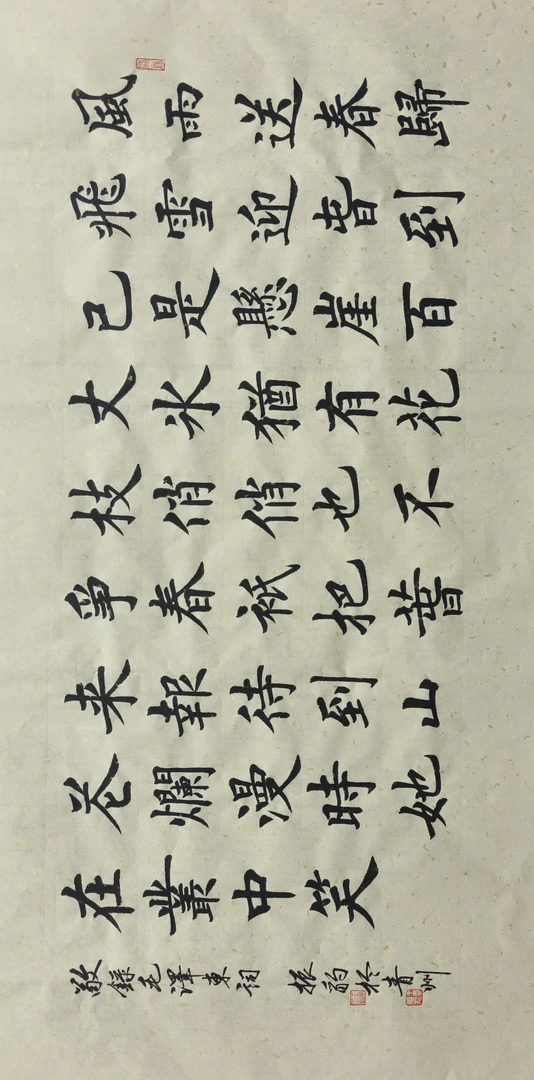 風雨送春歸
飛雪迎旾到
已是懸崖百
丈氷猶有花
枝俏俏也不
爭春衹把萅
来報待到山
芲爛漫時她
在叢中笑
敬錄毛澤東詞 振於青州